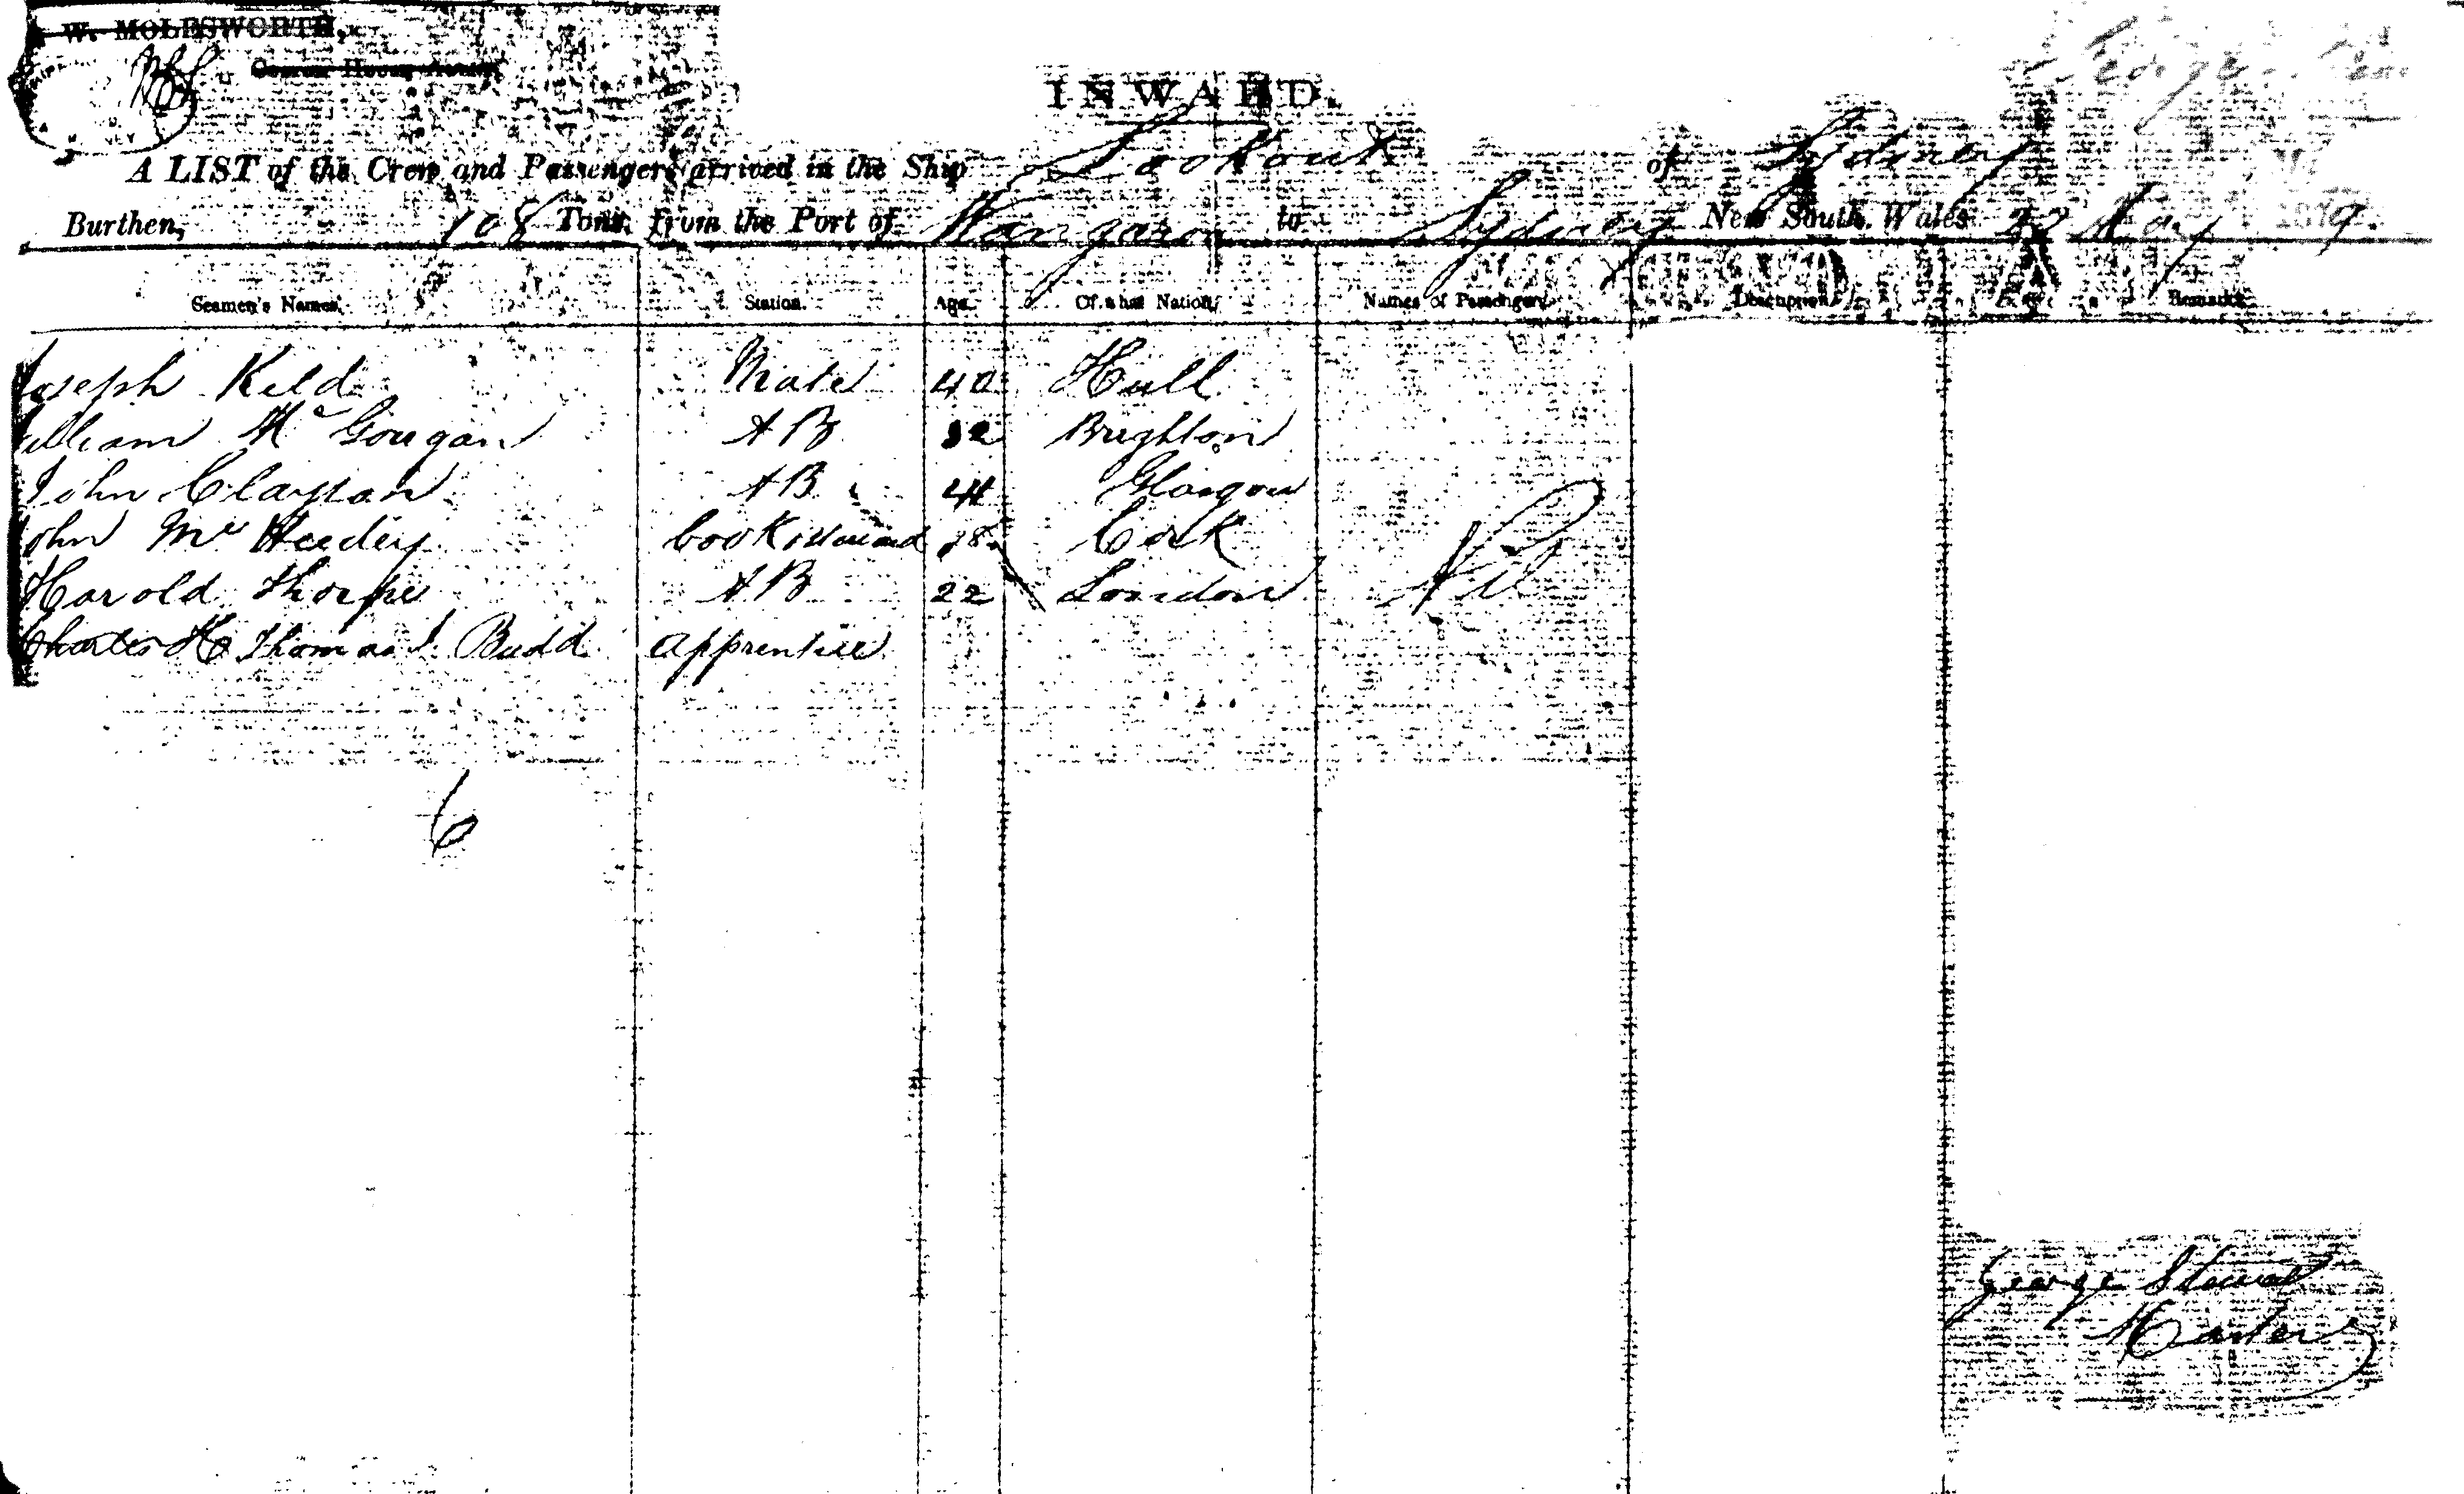 W. MOLESWORTH,
Custom House Agent
INWARD.
A LIST of the Crew and Passengers arrived in the Ship Lookout of Sydney
Burthen, 108 Tons, from the Port of to Sydney New South Wales 22 May 1879.
Seamen's Names. Station. Age. Of what Nation. Names of Passengers. Description. Remarks.
Joseph Mate 40 Hull
William Mc Gougan A B 32 Brighton
John Clayton A B 44 Glasgow
John Mc Cook & Steward 38 Cork Nil
Harold Thorpe A B 22 London
Charles H Thomas J. Budd Apprentice
6
George Stewart
Master